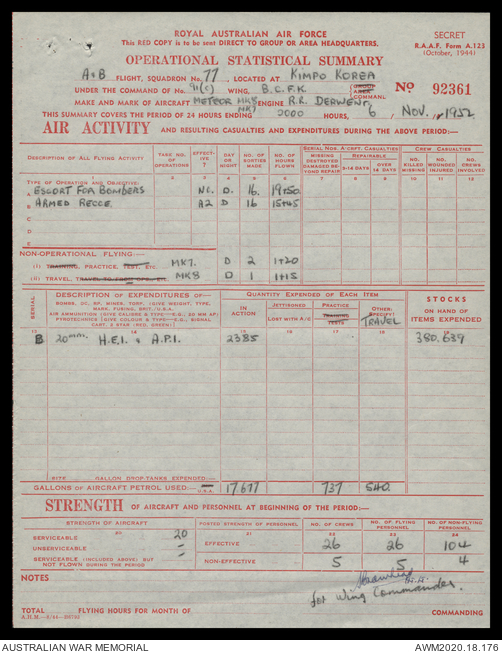 ROYAL AUSTRALIAN AIR FORCE
This RED COPY is to be sent DIRECT TO GROUP OR AREA HEADQUARTERS.
SECRET
R.A.A.F. Form A.123
(October, 1944)
OPERATIONAL STATISTICAL SUMMARY
A+B FLIGHT, SQUADRON No. 77, LOCATED AT KIMPO KOREA
UNDER THE COMMAND OF No. 91(C) WING, B.C.F.K. GROUP AREA COMMAND
No 92361
MAKE AND MARK OF AIRCRAFT METEOR MK8 MK7 ENGINE R.R. DERWENT
THIS SUMMARY COVERS THE PERIOD OF 24 HOURS ENDING 2000 HOURS, 6 NOV. 1952
AIR ACTIVITY AND RESULTING CASUALTIES AND EXPENDITURES DURING THE ABOVE PERIOD:—
DESCRIPTION OF ALL FLYING ACTIVITY
TAKE NO. OF OPERATIONS
EFFECTIVE ?
DAY OR NIGHT
NO. OF SORTIES MADE
NO. OF HOURS FLOWN
SERIAL NOS. A/CRFT. CASUALTIES
MISSING DESTROYED DAMAGED BEYOND REPAIR
REPAIRABLE
OVER 14 DAYS
CREW CASUALTIES
NO. KILLED MISSING
NO. WOUNDED INJURED
NO. CREWS INVOLVED
TYPE OF OPERATION AND OBJECTIVE:
ESCORT FOR BOMBERS NC. D. 16. 19+50.
B ARMED RECCE. A2 D 16 15+45
C
D
E
NON-OPERATIONAL FLYING:—
(I) TRAINING, PRACTICE, TEST, ETC. MK7. D 2 1+20
(II) TRAVEL, MK8 D 1 1+15
SERIAL
DESCRIPTION OF EXPENDITURES OF—
BOMBS, DC, RP, MINES, TORP. (GIVE WEIGHT, TYPE, MARK, FUSING, BRIT./U.S.A.
AIR AMMUNITION (GIVE CALIBRE & TYPE—E.G., 20 MM AP)
PYROTECHNICS (GIVE COLOUR & TYPE—E.G., SIGNAL CART. 2 STAR (RED, GREEN)
QUANTITY EXPENDED OF EACH ITEM
IN ACTION
JETTISONED LOST WITH A/C
PRACTICE TRAINING TESTS
OTHER: (SPECIFY) TRAVEL
STOCKS
ON HAND OF
ITEMS EXPENDED
B 20mm. H.E.I. & A.P.I. 2385 380,639
SITE GALLON DROP-TANKS EXPENDED—
GALLONS OF AIRCRAFT PETROL USED:— U.S.A. 17677 737 540.
STRENGTH OF AIRCRAFT AND PERSONNEL AT BEGINNING OF THE PERIOD:—
STRENGTH OF AIRCRAFT
POSTED STRENGTH OF PERSONNEL
NO. OF CREWS
NO. OF FLYING PERSONNEL
NO. OF NON-FLYING PERSONNEL
SERVICEABLE 20
EFFECTIVE 26 26 104
UNSERVICEABLE –
SERVICEABLE (INCLUDED ABOVE) BUT NOT FLOWN DURING THE PERIOD –
NON-EFFECTIVE 5 5 4
NOTES
for Wing Commander.
TOTAL FLYING HOURS FOR MONTH OF
COMMANDING
AUSTRALIAN WAR MEMORIAL
AWM2020.18.176